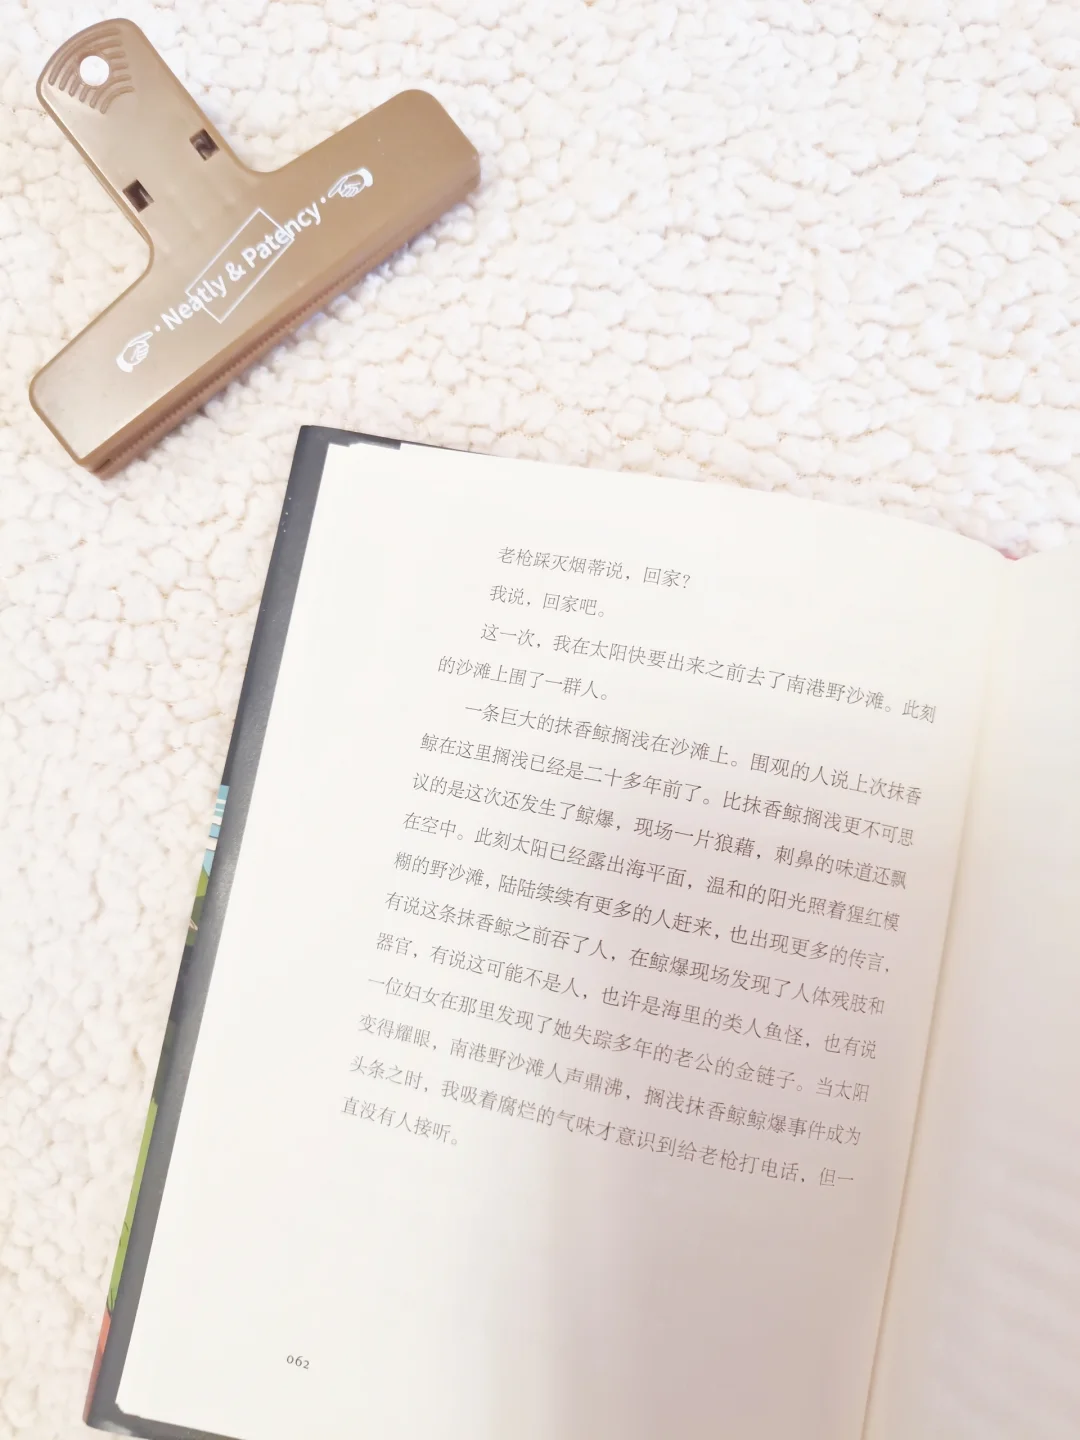 Neatly & Patency
老枪踩灭烟蒂说，回家？
我说，回家吧。
这一次，我在太阳快要出来之前去了南港野沙滩。此刻
的沙滩上围了一群人。
一条巨大的抹香鲸搁浅在沙滩上。围观的人说上次抹香
鲸在这里搁浅已经是二十多年前了。比抹香鲸搁浅更不可思
议的是这次还发生了鲸爆，现场一片狼藉，刺鼻的味道还飘
在空中。此刻太阳已经露出海平面，温和的阳光照着猩红模
糊的野沙滩，陆陆续续有更多的人赶来，也出现更多的传言，
有说这条抹香鲸之前吞了人，在鲸爆现场发现了人体残肢和
器官，有说这可能不是人，也许是海里的类人鱼怪，也有说
一位妇女在那里发现了她失踪多年的老公的金链子。当太阳
变得耀眼，南港野沙滩人声鼎沸，搁浅抹香鲸鲸爆事件成为
头条之时，我吸着腐烂的气味才意识到给老枪打电话，但一
直没有人接听。
062